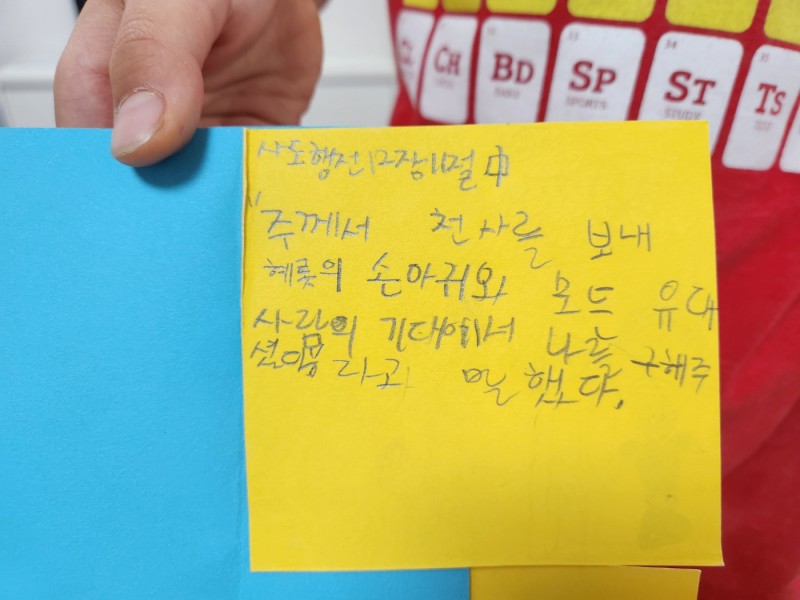 CH BD SP ST Ts
SPORTS STUDY
사도행전12장11절 中
"주께서 천사를 보내
헤롯의 손아귀와 모드 유대
사람의 기대에서 나를 구해주
셨 라고 말했다.